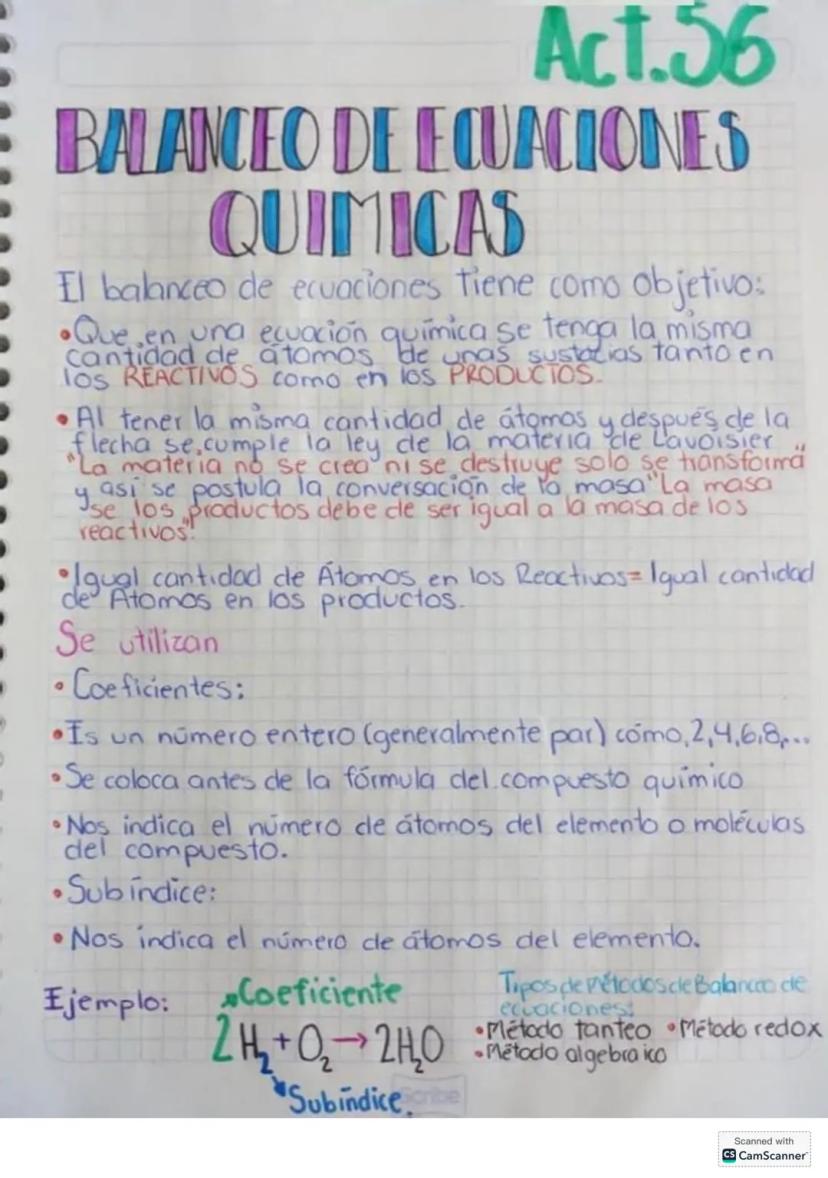 Act.56
BALANCEO DE ECUACIONES
QUIMICAS
El balanceo de ecuaciones tiene como objetivo:
•Que en una ecuación química se tenga la misma
cantidad de átomos de unas sustacias tanto en
los REACTIVOS como en los PRODUCTOS.
•Al tener la misma cantidad de átomos y después de la
flecha se cumple la ley de la materia de Lavoisier
"La materia no se crea ni se destruye solo se transforma"
y así se postula la conversación de la masa "La masa
se los productos debe de ser igual a la masa de los
reactivos".
•Igual cantidad de Átomos en los Reactivos= Igual cantidad
de Átomos en los productos.
Se utilizan
•Coeficientes:
•Is un número entero (generalmente par) cómo,2,4,6,8,...
•Se coloca antes de la fórmula del compuesto químico
•Nos indica el número de átomos del elemento o moléculas
del compuesto.
•Subíndice:
•Nos indica el número de átomos del elemento.
Ejemplo:
Coeficiente
2H₂+O₂→2H₂O
Subíndice.
Tipos de Métodos de Balanceo de
ecuaciones:
•Método tanteo •Método redox
•Método algebraico
Scribe
Scanned with
CS CamScanner